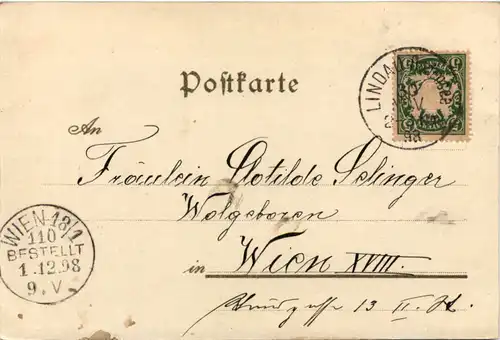 Postkarte
LINDAU
5
5
98
An
Fräulein Clotilde Selinger
Wolgeboren
in Wien XVIII.
13 II. St.
WIEN 18/1
110
BESTELLT
1.12.98
9.V